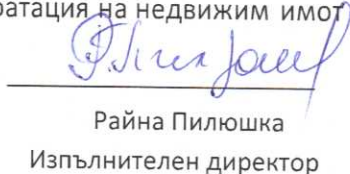 ратация на недвижим имот
Райна Пилюшка
Изпълнителен директор